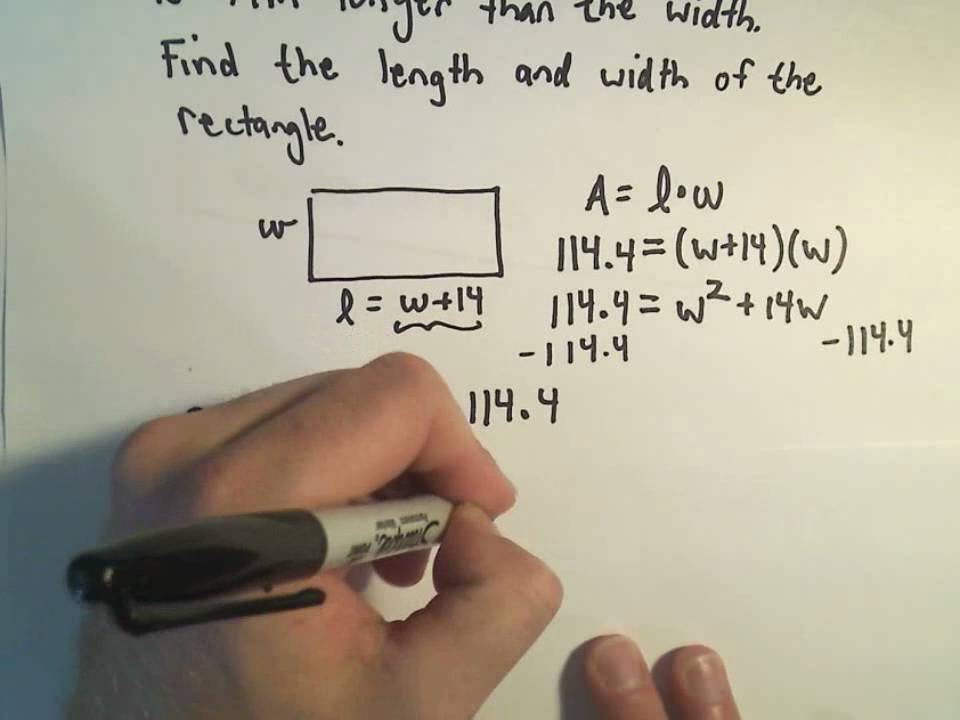 longer than the width.
Find the length and width of the
rectangle.
w
l = w+14
A = l·w
114.4 = (w+14)(w)
114.4 = w² + 14w
-114.4 -114.4
114.4